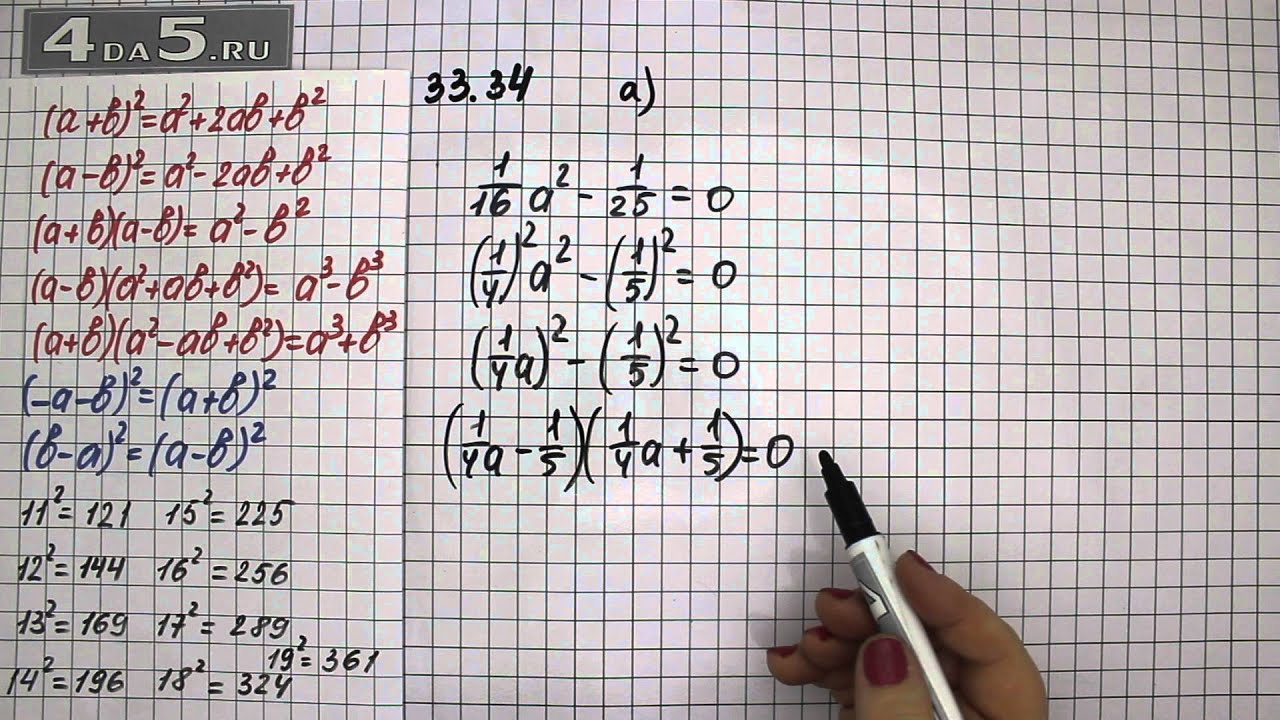 4DA5.RU
(a+b)²=a²+2ab+b²
(a-b)²=a²-2ab+b²
(a+b)(a-b)=a²-b²
(a-b)(a²+ab+b²)=a³-b³
(a+b)(a²-ab+b²)=a³+b³
(-a-b)²=(a+b)²
(b-a)²=(a-b)²
11²=121 15²=225
12²=144 16²=256
13²=169 17²=289
19²=361
14²=196 18²=324
33.34 a)
1/16 a² - 1/25 = 0
(1/4)²a² - (1/5)² = 0
(1/4a)² - (1/5)² = 0
(1/4a - 1/5)(1/4a + 1/5) = 0